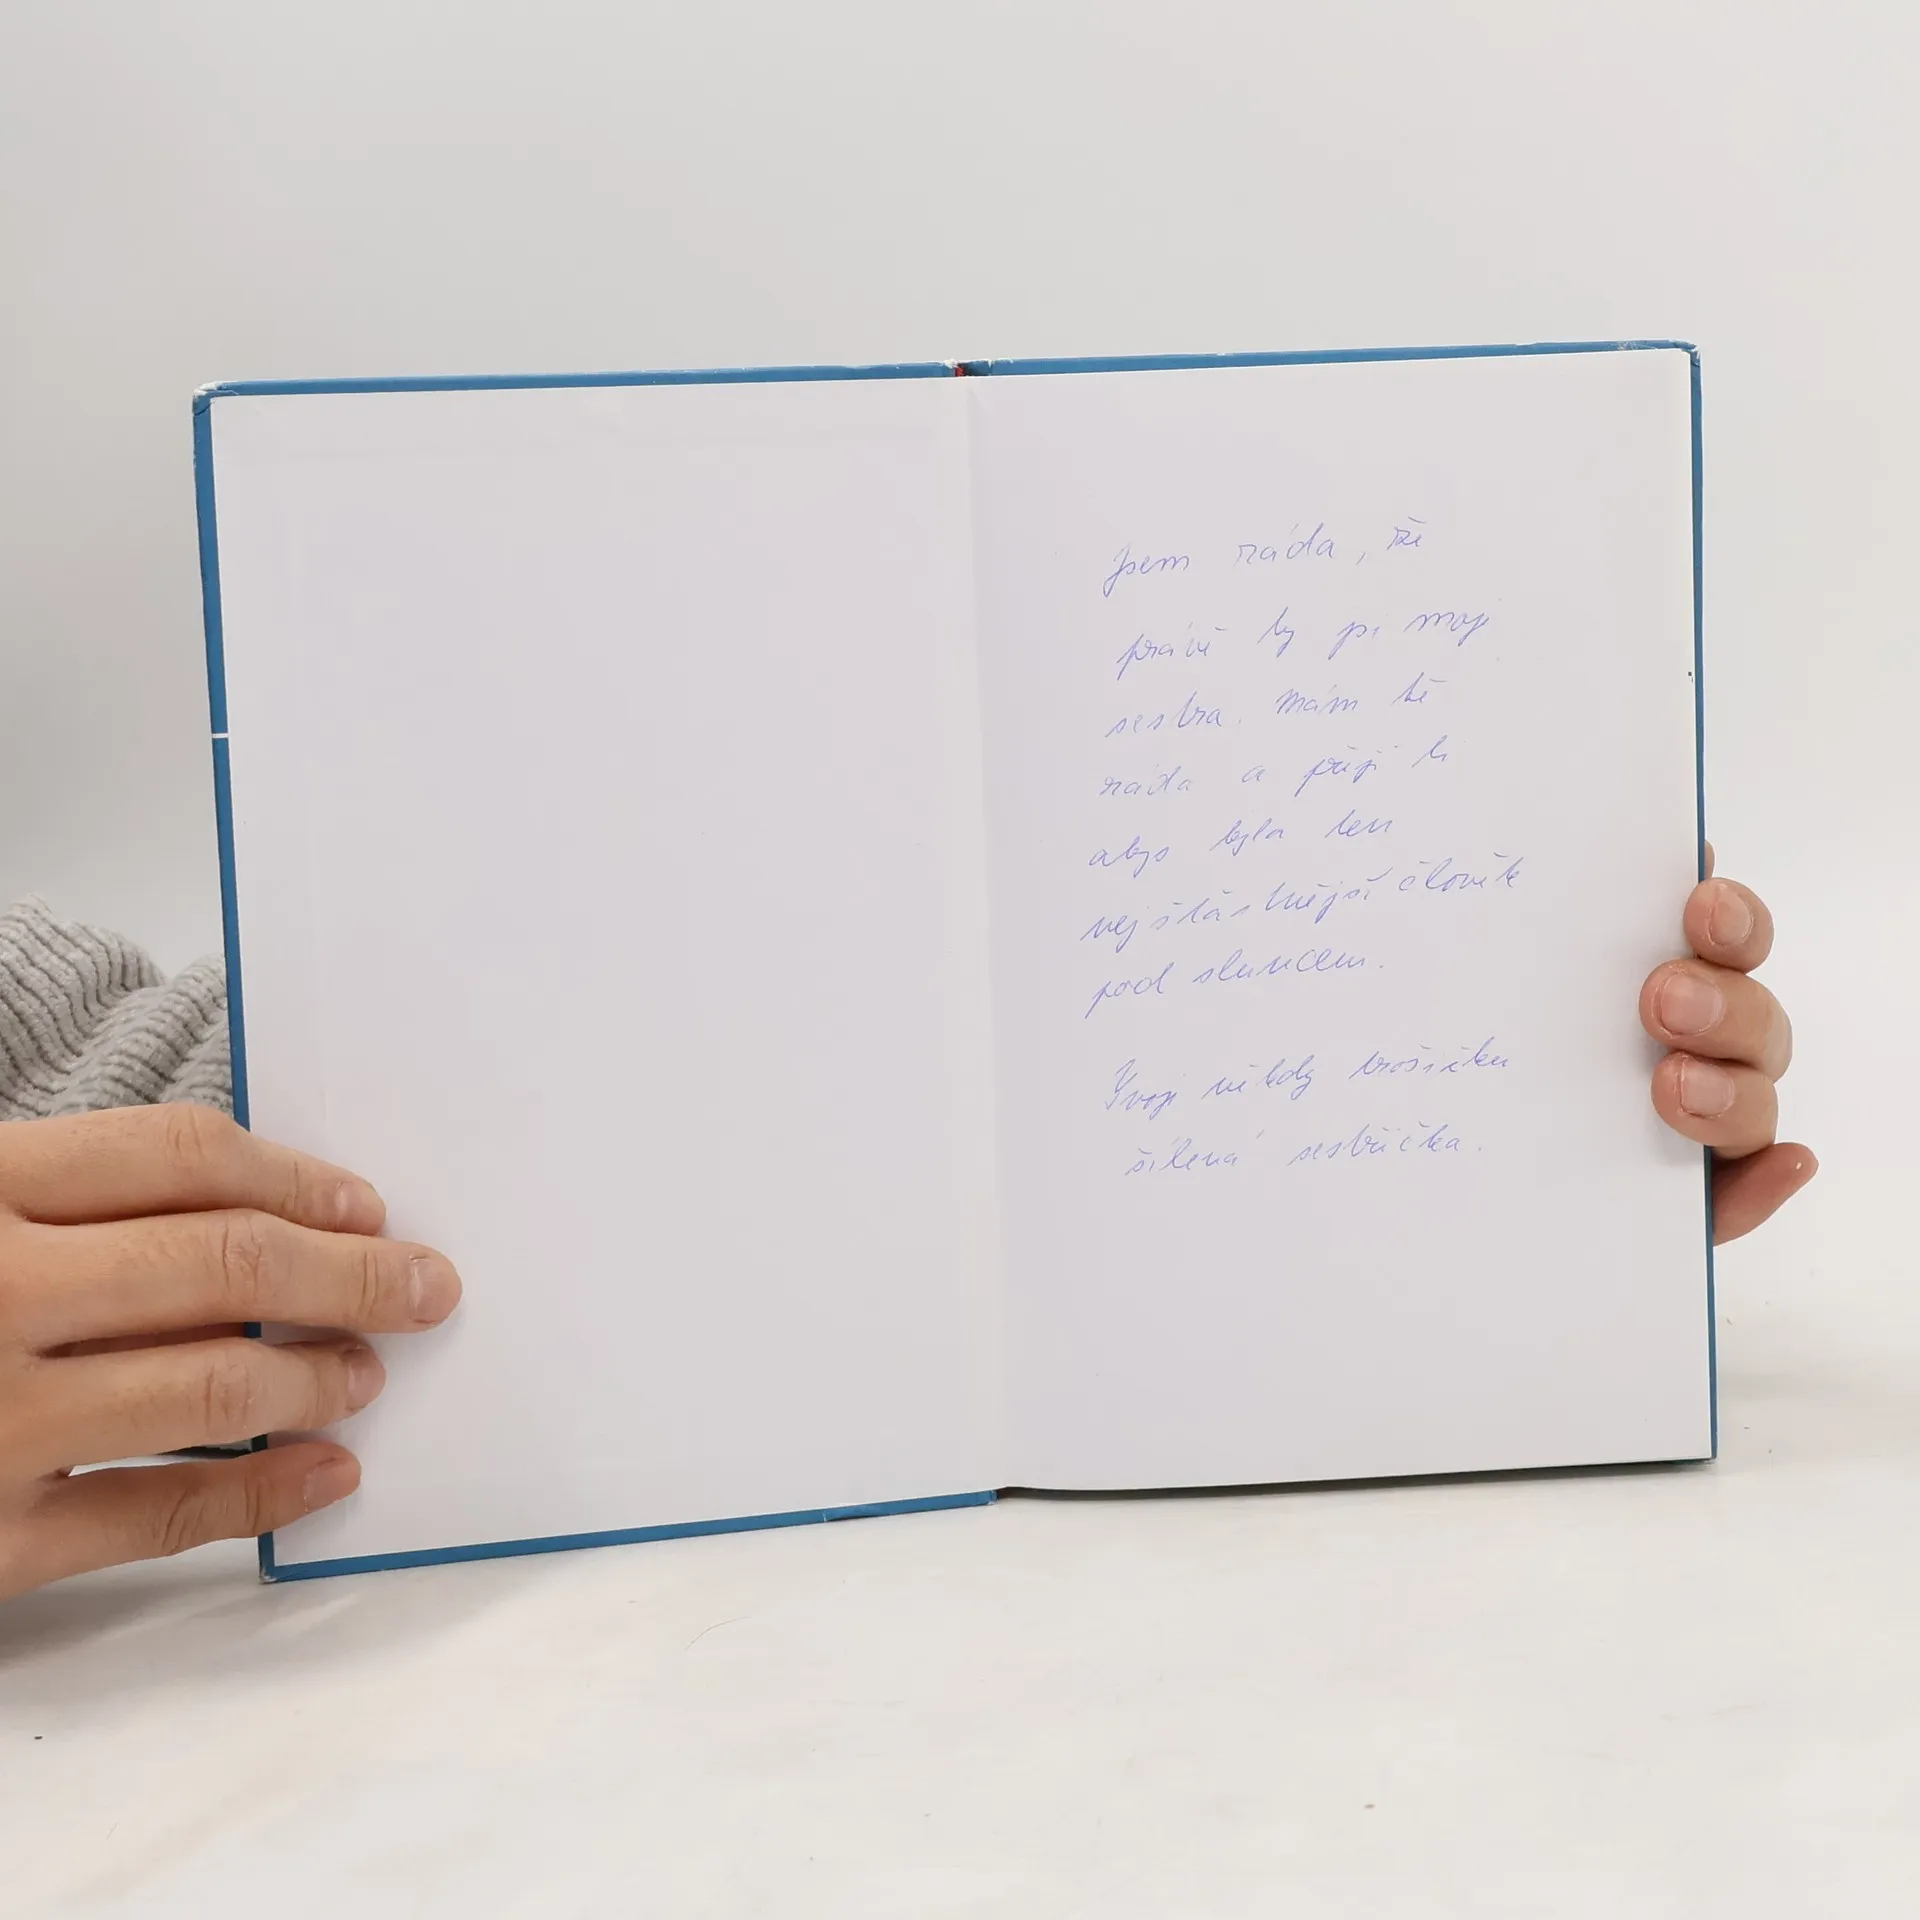 Jsem ráda, že
právě ty jsi moji
sestra. Mám tě
ráda a přeji ti
abys byla ten
nejšťastnější člověk
pod sluncem.
Tvoji někdy trošičku
šílená sestřička.